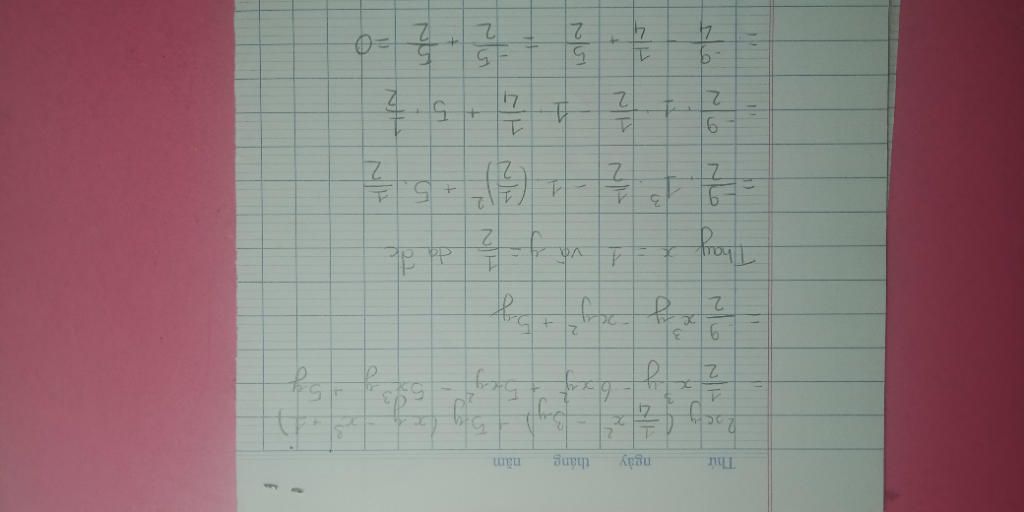 Thứ ngày tháng năm
2xy (1/4 x² - 3y) + 5y (xy - x³ + 1)
= 1/2 x³y - 6xy² + 5xy² - 5x³y + 5y
= -9/2 x³y - xy² + 5y
Thay x = 1 và y = 1/2 da dc
= -9/2 . 1³ . 1/2 - 1 . (1/2)² + 5 . 1/2
= -9/2 . 1 . 1/2 - 1 . 1/4 + 5 . 1/2
= -9/4 - 1/4 + 5/2 = -5/2 + 5/2 = 0